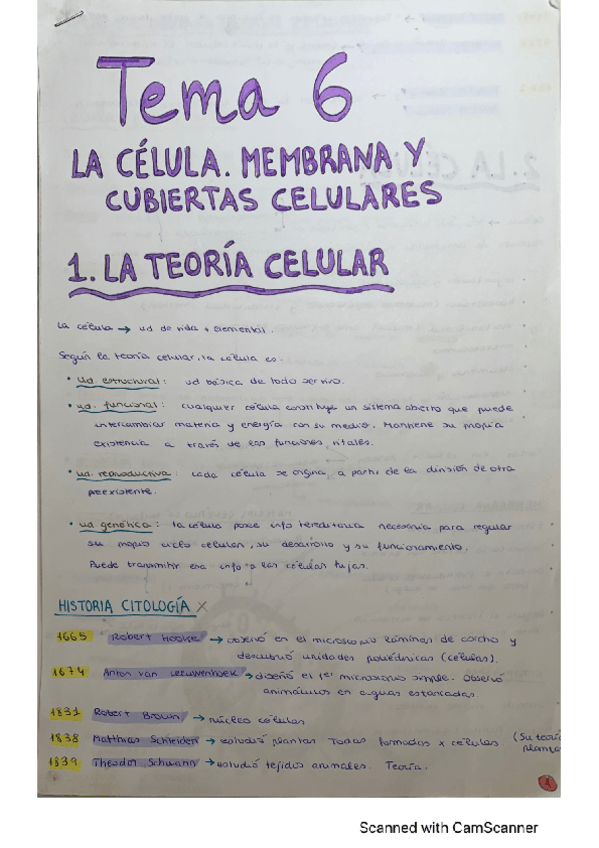 Tema 6
LA CÉLULA. MEMBRANA Y
CUBIERTAS CELULARES
1. LA TEORÍA CELULAR
La célula → ud de vida + elemental.
Según la teoría celular, la célula es:
• ud. estructural: ud básica de todo ser vivo.
• ud. funcional: cualquier célula constituye un sistema abierto que puede
intercambiar materia y energía con su medio. Mantiene su propia
existencia a través de las funciones vitales.
• ud. reproductiva: cada célula se origina a partir de la división de otra
preexistente.
• ud genética: la célula posee info hereditaria necesaria para regular
su propio ciclo celular, su desarrollo y su funcionamiento.
Puede transmitir esa info a las células hijas.
HISTORIA CITOLOGÍA X
1665 Robert Hooke → observó en el microscopio láminas de corcho y
descubrió unidades poliédricas (células).
1674 Anton van Leeuwenhoek → diseñó el 1er microscopio simple. Observó
animálculos en aguas estancadas.
1831 Robert Brown → núcleo células
1838 Matthias Schleiden → estudió plantas Todas formadas x células. (Su teoría
1839 Theodor Schwann → estudió tejidos animales. Teoría.
Scanned with CamScanner